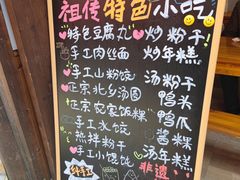 祖传特色小吃
特色豆腐丸 炒粉干
手工肉丝面 炒年糕
手工山粉饺 汤粉干
正宗北乡汤圆 鸭头
正宗农家饭粿 鸭爪
手工水饺 酱粿
热拌粉干 汤年糕
手工小馄饨 非遗
纯手工